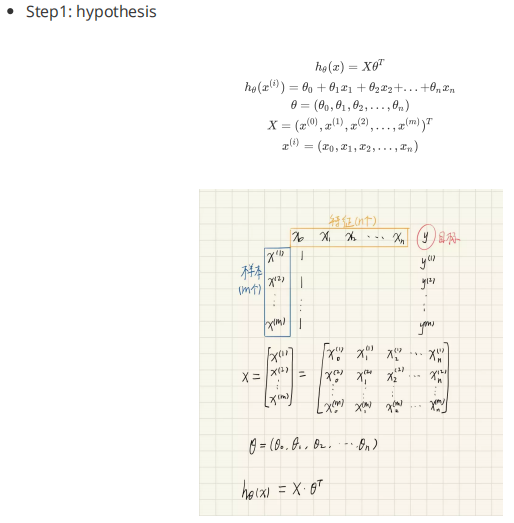 Step1: hypothesis
h_θ(x) = Xθ^T
h_θ(x^(i)) = θ_0 + θ_1x_1 + θ_2x_2+...+θ_nx_n
θ = (θ_0, θ_1, θ_2, ..., θ_n)
X = (x^(0), x^(1), x^(2), ..., x^(m))^T
x^(i) = (x_0, x_1, x_2, ..., x_n)
特征(n个)
x_0 x_1 x_2 ... x_n y 目标
样本
(m个)
x^(1) 1 y^(1)
x^(2) 1 y^(2)
⋮ ⋮ ⋮
x^(m) 1 y^(m)
X = [x^(1) x^(2) ⋮ x^(m)] = [x_0^(1) x_1^(1) x_2^(1) ... x_n^(1)
x_0^(2) x_1^(2) x_2^(2) ... x_n^(2)
⋮ ⋮ ⋮ ⋮
x_0^(m) x_1^(m) x_2^(m) ... x_n^(m)]
θ = (θ_0, θ_1, θ_2, ... θ_n)
h_θ(x) = X · θ^T